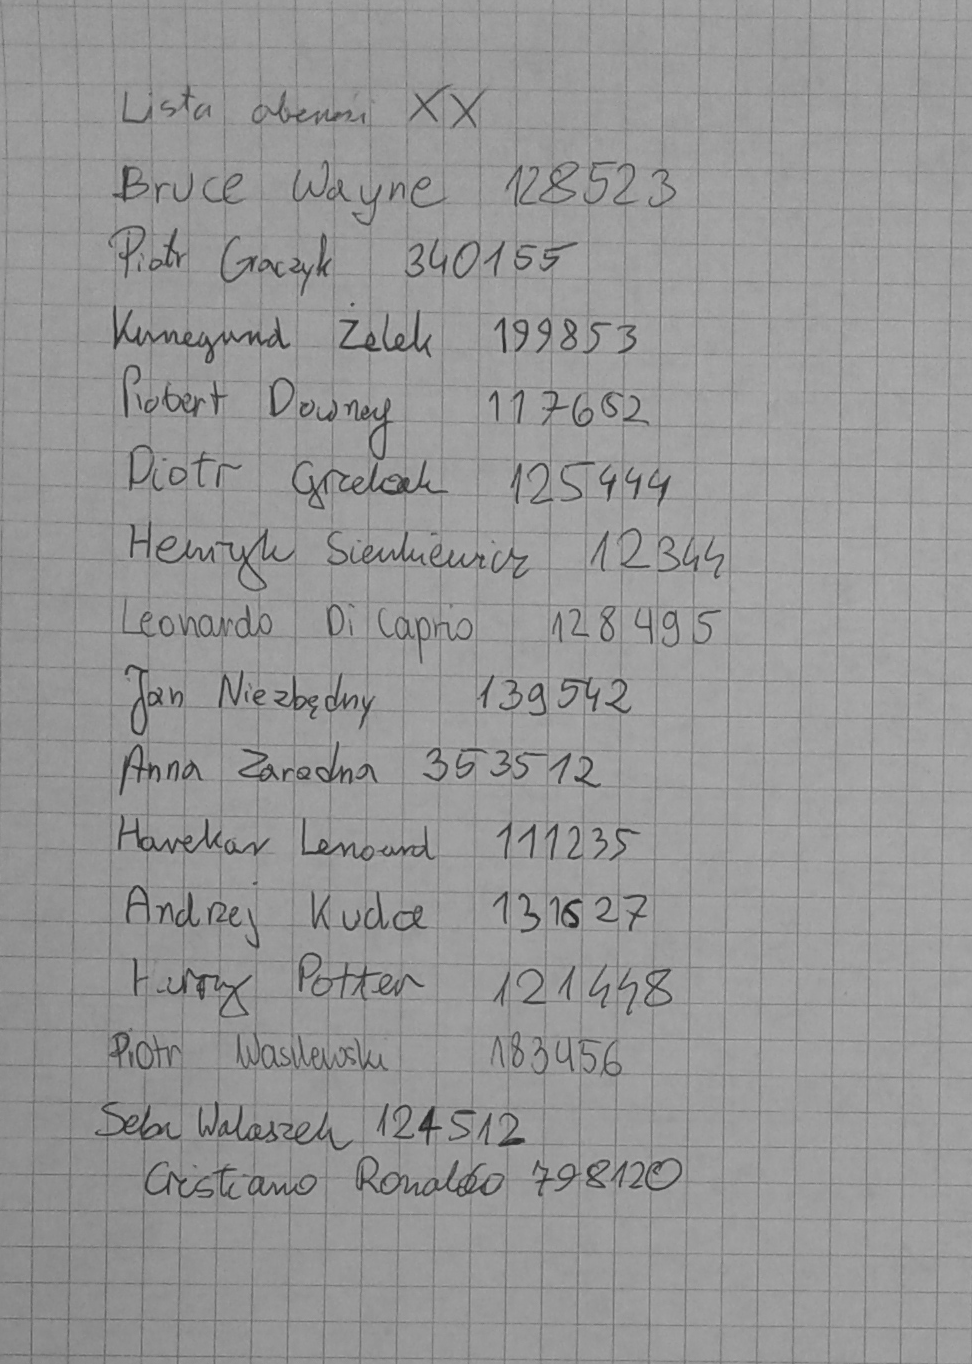 Lista obecności XX
Bruce Wayne 128523
Piotr Graczyk 340155
Kunegund Żelek 199853
Robert Downey 117652
Piotr Grzelak 125444
Henryk Sienkiewicz 12344
Leonardo Di Caprio 128495
Jan Niezbędny 139542
Anna Zaradna 353512
Havekar Lenoard 111235
Andrzej 131627
Harry Potter 121448
Piotr Wasilewski 183456
Seba Walaszek 124512
Cristiano Ronaldo 798120